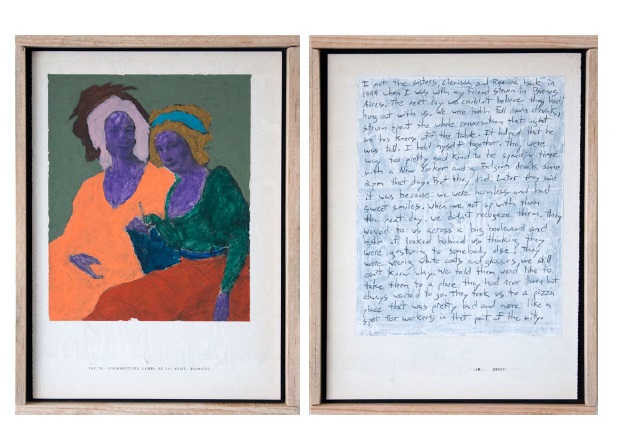 TAV. IV - GIAMBATTISTA
I met the sisters, Clarissa and Romina, back in
1999 when I was with my friend Steven in Buenos
Aires. The next day we couldn't believe they had
hung out with us. We were both fall down drunk,
Steven spent the whole conversation that night
on his knees off the table. It helped that he
was tall. I held myself together. They were
way too pretty and kind to be spending time
with a New Yorker and a drunk since
2pm that day. But they did. Later they said
it was because we were harmless and had
sweet smiles. When we met up with them
the next day, we didn't recognize them. They
waved to us across a big boulevard and
both of looked behind us thinking they
were gesturing to somebody else. They
were wearing white coats and glasses, we still
don't know why. We told them we'd like to
take them to a place they had never been but
always wanted to go. They took us to a pizza
place that was pretty bad and more like a
spot for workers in that part of the city.